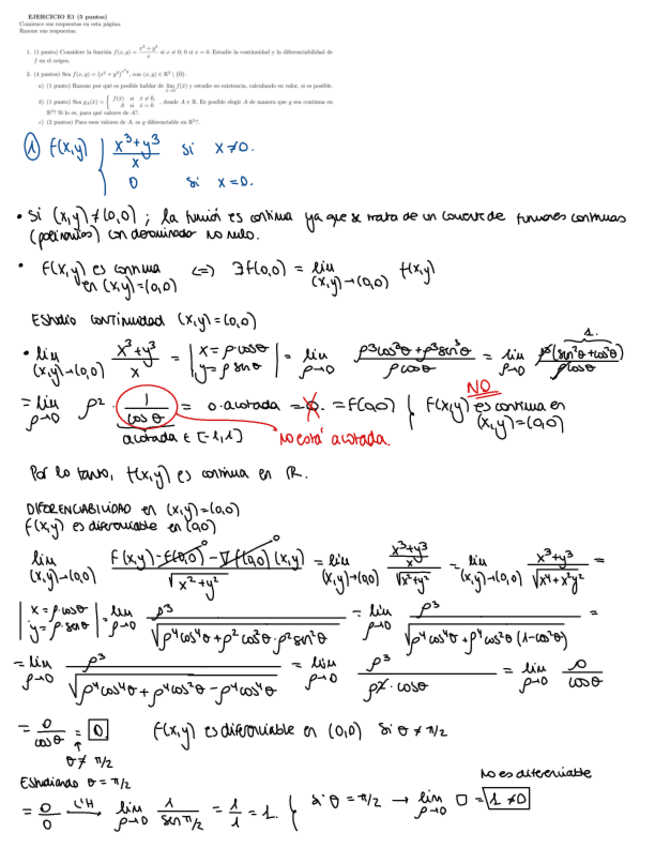 EJERCICIO E1 (5 puntos)
Comience sus respuestas en esta página.
Razone sus respuestas.
1. (1 punto) Considere la función f(x, y) = (x³ + y³)/x si x ≠ 0; 0 si x = 0. Estudie la continuidad y la diferenciabilidad de
f en el origen.
2. (4 puntos) Sea f(x, y) = (x² + y²)^, con (x, y) ∈ ℝ² \ {0}.
a) (1 punto) Razone por qué es posible hablar de lim f(x̄) y estudie su existencia, calculando su valor, si es posible.
b) (1 punto) Sea g_A(x̄) = { f(x̄) si x̄ ≠ 0̄, A si x̄ = 0̄ , donde A ∈ ℝ. Es posible elegir A de manera que g sea continua en
ℝ²? Si lo es, para qué valores de A?.
c) (2 puntos) Para esos valores de A, es g diferenciable en ℝ²?.
① f(x,y) { (x³+y³)/x si x≠0.
0 si x=0.
• Si (x,y) ≠ (0,0) ; la función es continua ya que se trata de un cociente de funciones continuas
(polinomios) con denominador no nulo.
• f(x,y) es continua en (x,y)=(0,0) <=> ∃ f(0,0) = lim (x,y)→(0,0) f(x,y)
Estudio continuidad (x,y)=(0,0)
• lim (x,y)→(0,0) (x³+y³)/x = | x = ρ cosθ y = ρ senθ | = lim ρ→0 (ρ³cos³θ + ρ³sen³θ)/(ρ cosθ) = lim ρ→0 ρ³(sen²θ + cos²θ)/(ρ cosθ) 1.
= lim ρ→0 ρ² · 1/cosθ = 0 · acotada = 0. = f(0,0) { f(x,y) NO es continua en (x,y)=(0,0)
acotada ∈ [-1,1] No está acotada.
Por lo tanto, f(x,y) es continua en ℝ.
DIFERENCIABILIDAD en (x,y)=(0,0)
f(x,y) es diferenciable en (0,0)
lim (x,y)→(0,0) (f(x,y) - f(0,0) - ∇f(0,0)(x,y))/√(x²+y²) = lim (x,y)→(0,0) ((x³+y³)/x)/√(x²+y²) = lim (x,y)→(0,0) (x³+y³)/√(x⁴+x²y²) =
| x = ρ·cosθ y = ρ·senθ | = lim ρ→0 ρ³/√(ρ⁴cos⁴θ + ρ²cos²θ·ρ²sen²θ) = lim ρ→0 ρ³/√(ρ⁴cos⁴θ + ρ⁴cos²θ(1-cos²θ)) =
= lim ρ→0 ρ³/√(ρ⁴cos⁴θ + ρ⁴cos²θ - ρ⁴cos⁴θ) = lim ρ→0 ρ³/(ρ²·cosθ) = lim ρ→0 ρ/cosθ
= 0/cosθ = 0 f(x,y) es diferenciable en (0,0) si θ ≠ π/2
θ ≠ π/2
Estudiando θ = π/2
No es diferenciable
= 0/0 L'H → lim ρ→0 1/sen π/2 = 1/1 = 1. { si θ = π/2 → lim ρ→0 0 = 1 ≠ 0